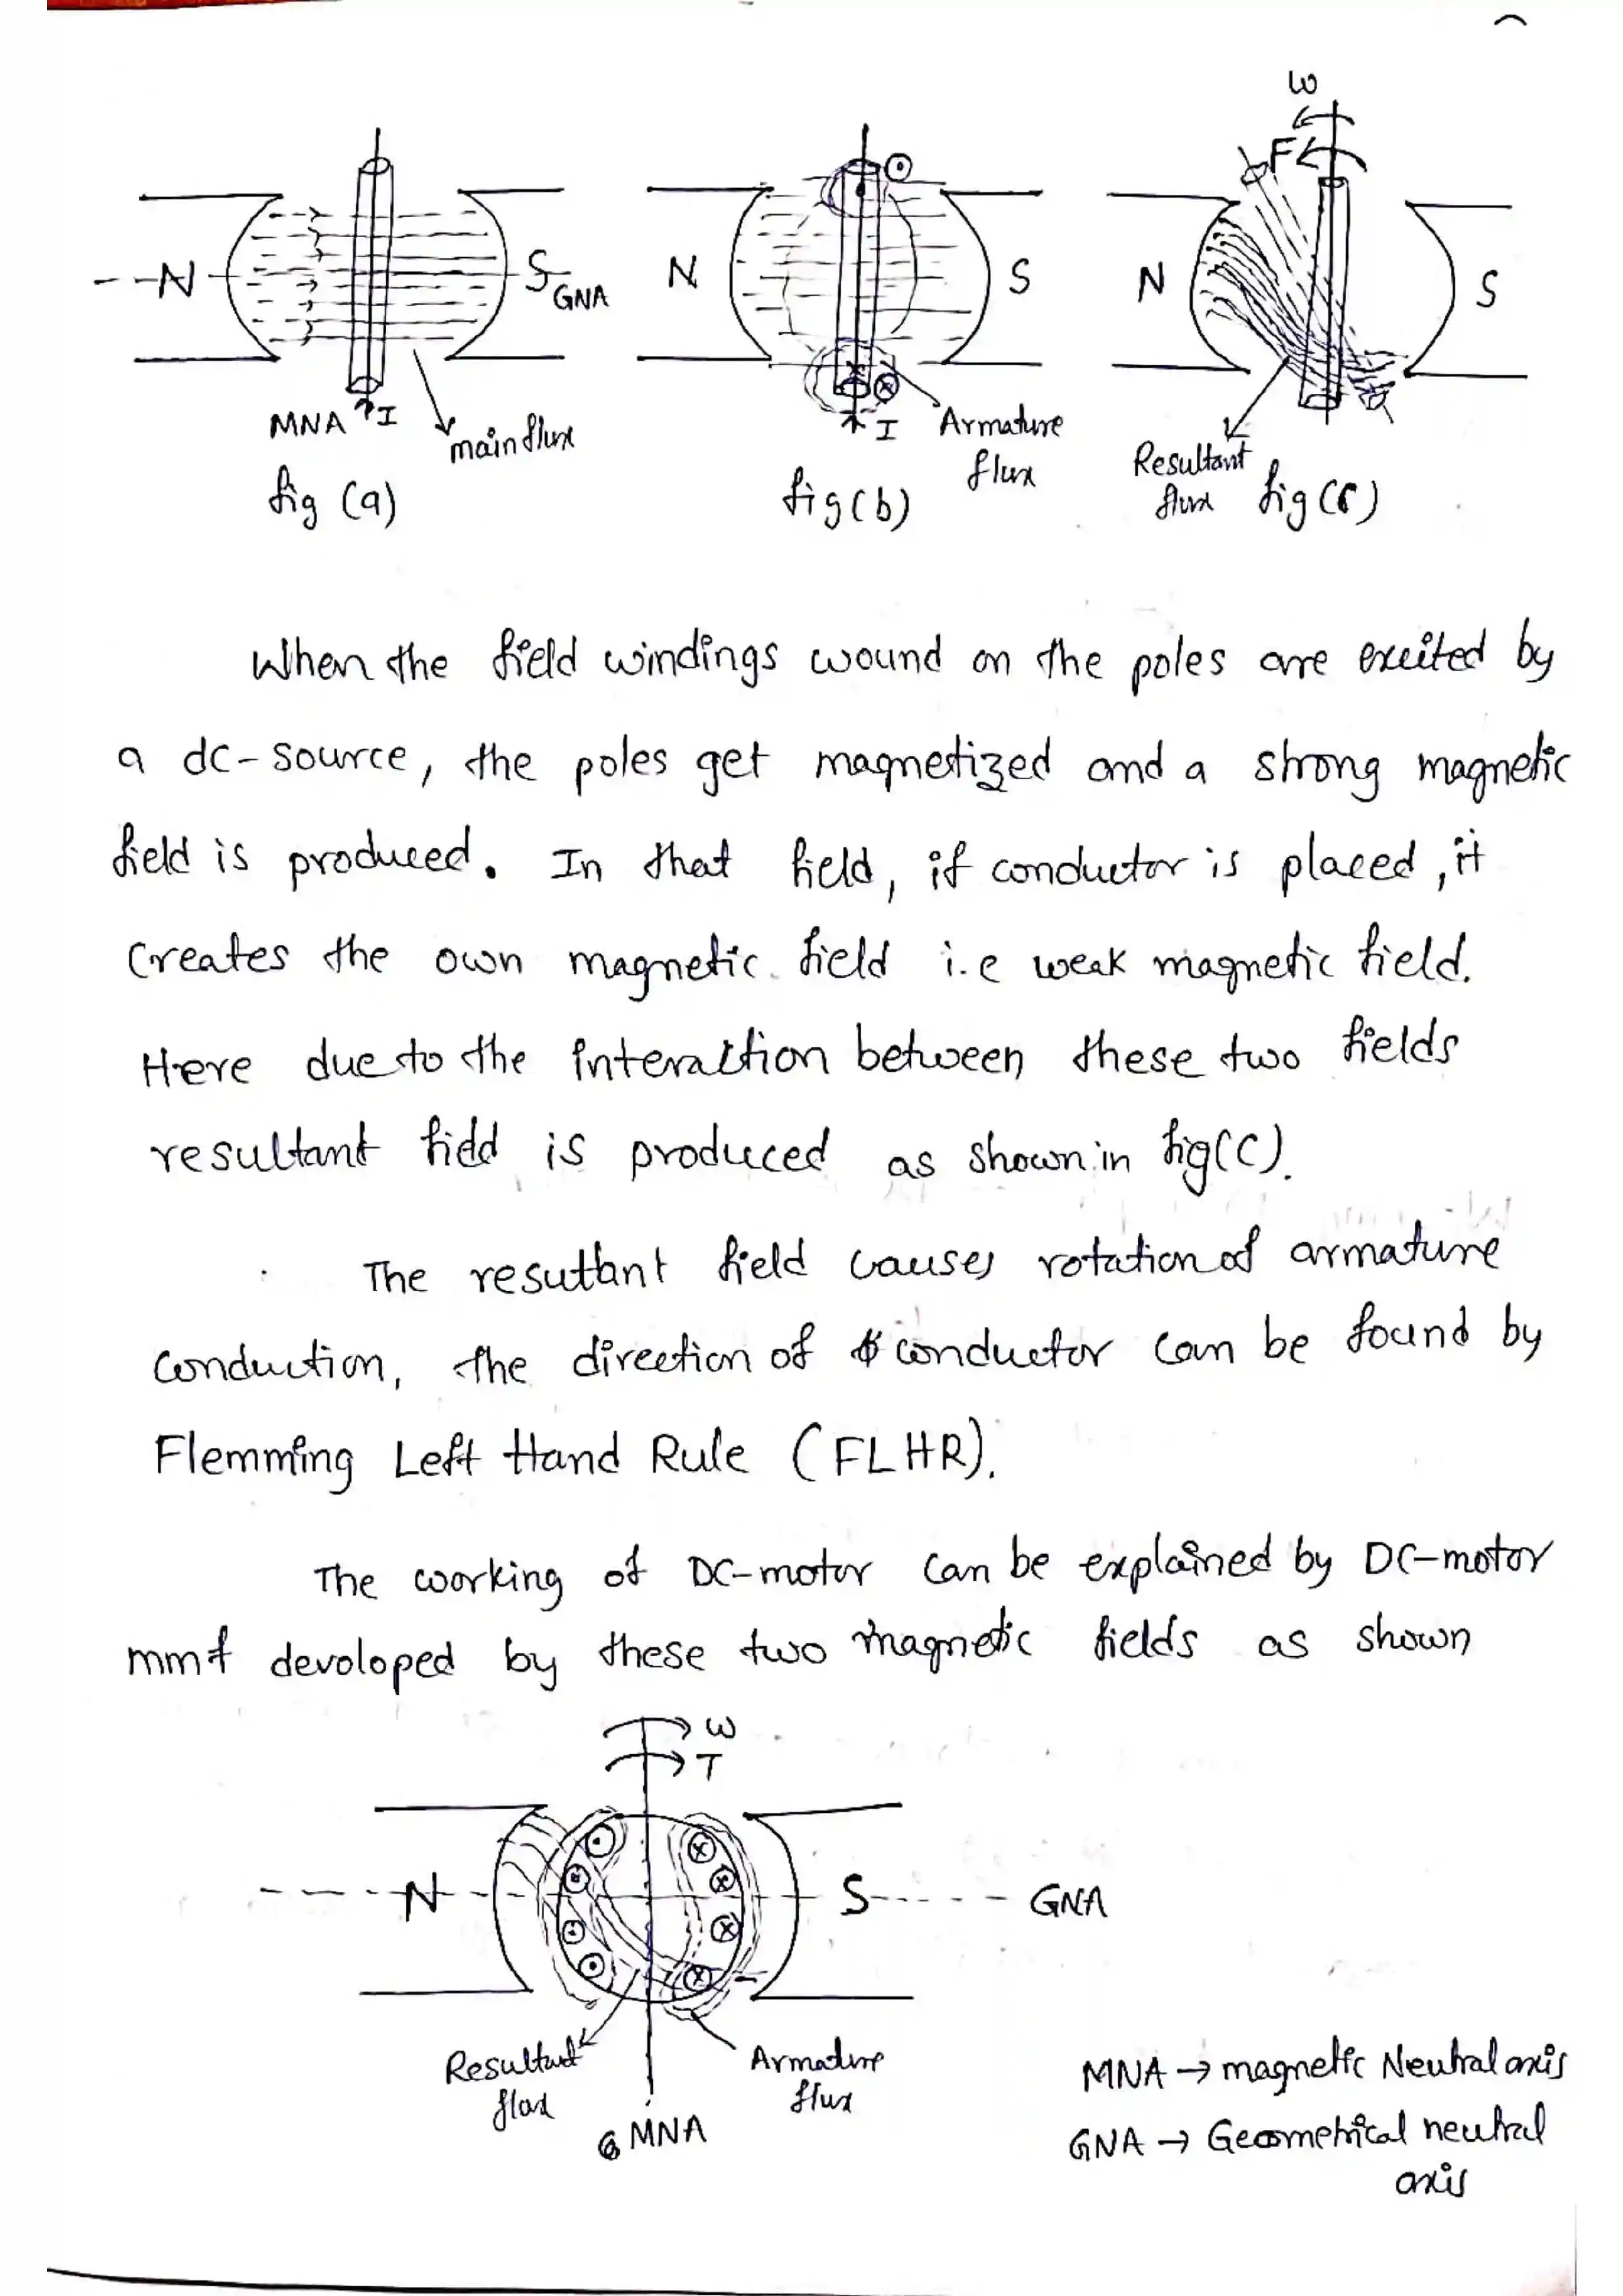 ω
F
N
S
GNA
N
S
N
S
MNA
I
main flux
I
Armature
flux
Resultant
flux
fig (a)
fig (b)
fig (c)
When the field windings wound on the poles are excited by
a dc-source, the poles get magnetized and a strong magnetic
field is produced. In that field, if conductor is placed, it
Creates the own magnetic field i.e weak magnetic field.
Here due to the interaction between these two fields
resultant field is produced as shown in fig(c).
The resultant field causes rotation of armature
Conduction, the direction of conductor can be found by
Flemming Left Hand Rule (FLHR).
The working of DC-motor can be explained by DC-motor
mmf devoloped by these two magnetic fields as shown
ω
T
N
S
GNA
Resultant
flux
Armature
flux
MNA
MNA → magnetic Neutral axis
GNA → Geometrical neutral
axis